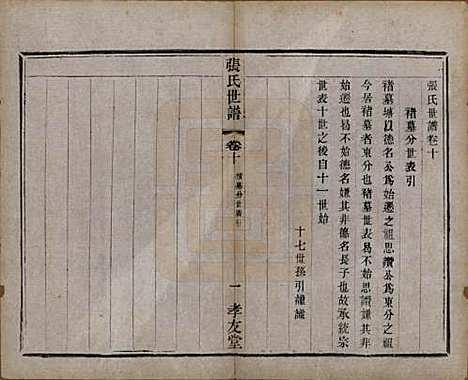 張氏世譜卷十
楮墓分世表引
楮墓以德名公爲始遷之祖思讚公爲東分之祖
今居楮墓者東分也楮墓世表易不始思讚嫌其非
始遷也易不始德名嫌其非德名長子也故承統宗
世表十世之後自十一世始
十七世孫引謹識
張氏世譜
卷十
楮墓分世表引
一
孝友堂